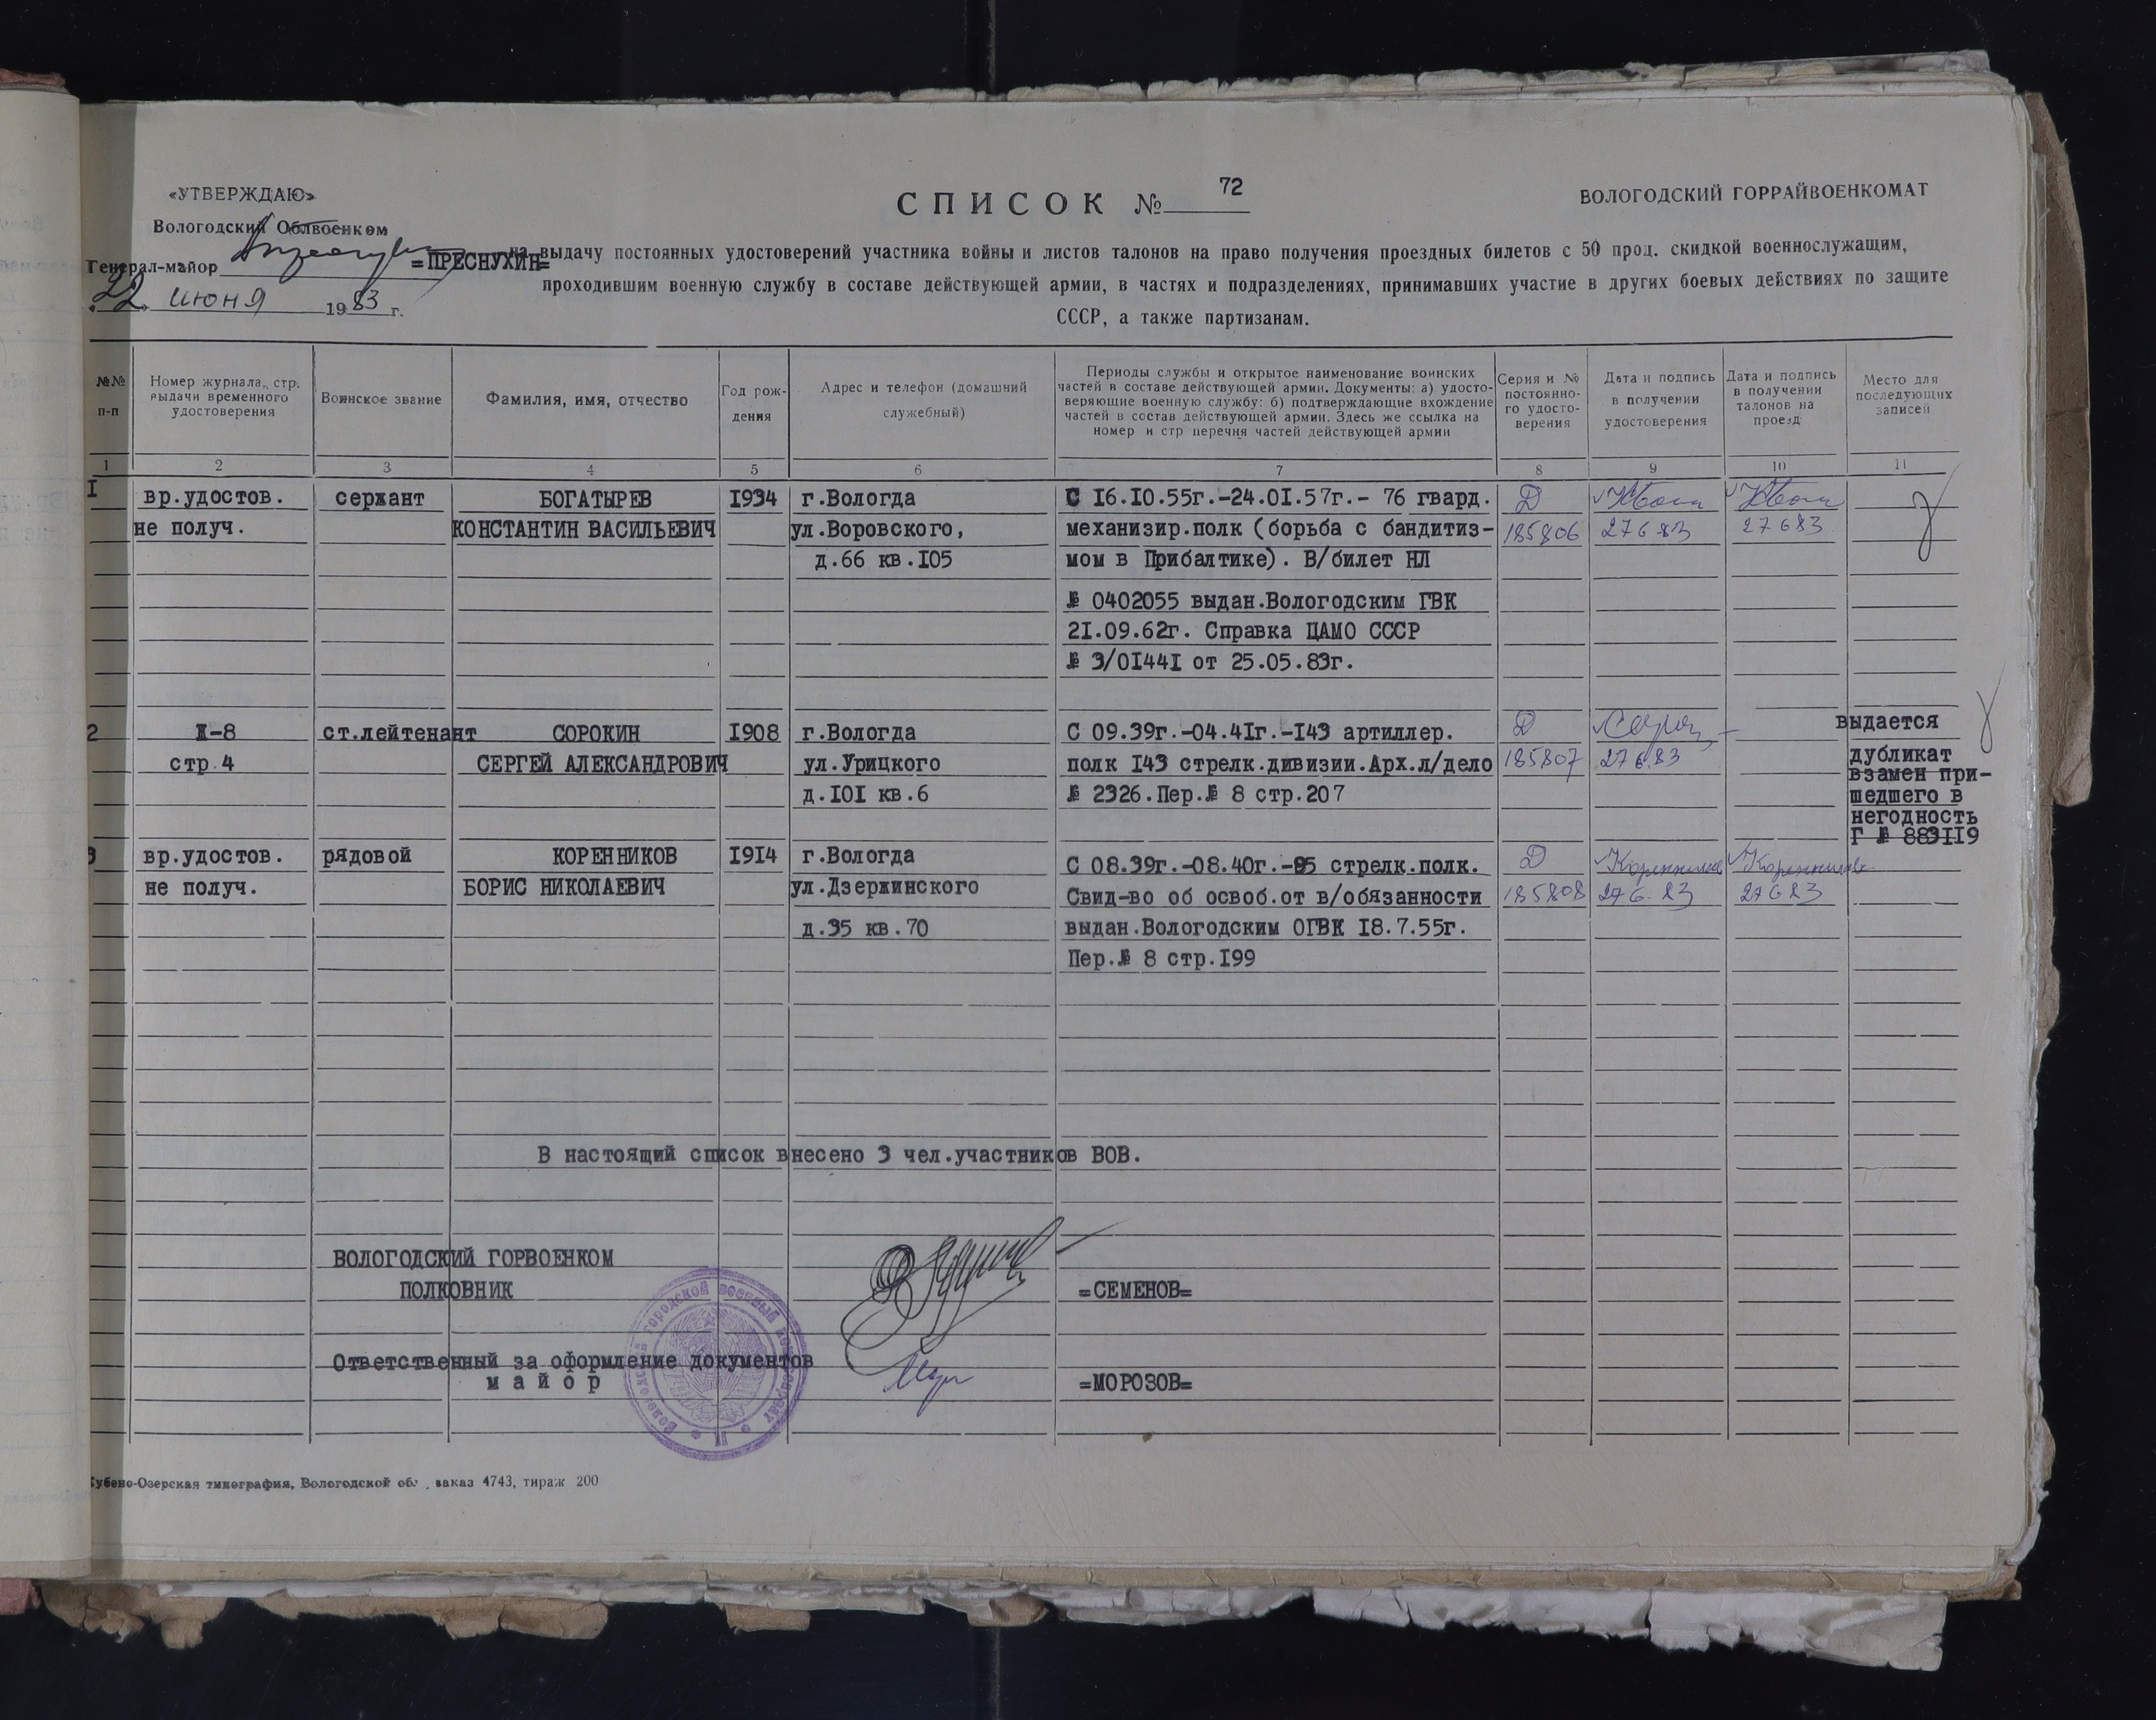 «УТВЕРЖДАЮ»
Вологодский Облвоенком
Генерал-майор =ПРЕСНУХИН=
"22" июня 1983 г.
СПИСОК № 72
ВОЛОГОДСКИЙ ГОРРАЙВОЕНКОМАТ
на выдачу постоянных удостоверений участника войны и листов талонов на право получения проездных билетов с 50 проц. скидкой военнослужащим,
проходившим военную службу в составе действующей армии, в частях и подразделениях, принимавших участие в других боевых действиях по защите
СССР, а также партизанам.
№№ п-п
Номер журнала, стр. выдачи временного удостоверения
Воинское звание
Фамилия, имя, отчество
Год рож- дения
Адрес и телефон (домашний служебный)
Периоды службы и открытое наименование воинских
частей в составе действующей армии. Документы: а) удосто-
веряющие военную службу: б) подтверждающие вхождение
частей в состав действующей армии. Здесь же ссылка на
номер и стр перечня частей действующей армии
Серия и № постоянно- го удосто- верения
Дата и подпись в получении удостоверения
Дата и подпись в получении талонов на проезд
Место для последующих записей
1 2 3 4 5 6 7 8 9 10 11
I вр.удостов. сержант БОГАТЫРЕВ I934 г.Вологда С I6.I0.55г.-24.0I.57г.- 76 гвард. Д
не получ. КОНСТАНТИН ВАСИЛЬЕВИЧ ул.Воровского, механизир.полк (борьба с бандитиз- 185806 27 6 83 27 6 83
д.66 кв.I05 мом в Прибалтике). В/билет НЛ
№ 0402055 выдан.Вологодским ГВК
2I.09.62г. Справка ЦАМО СССР
№ 3/0I44I от 25.05.83г.
2 Ж-8 ст.лейтенант СОРОКИН I908 г.Вологда С 09.39г.-04.4Iг.-I43 артиллер. Д выдается
стр.4 СЕРГЕЙ АЛЕКСАНДРОВИЧ ул.Урицкого полк I43 стрелк.дивизии.Арх.л/дело 185807 27 6 83 дубликат
взамен при-
д.I0I кв.6 № 2326.Пер.№ 8 стр.207 шедшего в
негодность
Г № 883II9
3 вр.удостов. рядовой КОРЕННИКОВ I9I4 г.Вологда С 08.39г.-08.40г.-95 стрелк.полк. Д Коренников Коренников
не получ. БОРИС НИКОЛАЕВИЧ ул.Дзержинского Свид-во об освоб.от в/обязанности 185808 27 6. 83 27 6 83
д.35 кв.70 выдан.Вологодским ОГВК I8.7.55г.
Пер.№ 8 стр.I99
В настоящий список внесено 3 чел.участников ВОВ.
ВОЛОГОДСКИЙ ГОРВОЕНКОМ
ПОЛКОВНИК =СЕМЕНОВ=
Ответственный за оформление документов
майор =МОРОЗОВ=
Вологодский городской военный комиссариат
Кубено-Озерская типография, Вологодской обл., заказ 4743, тираж 200